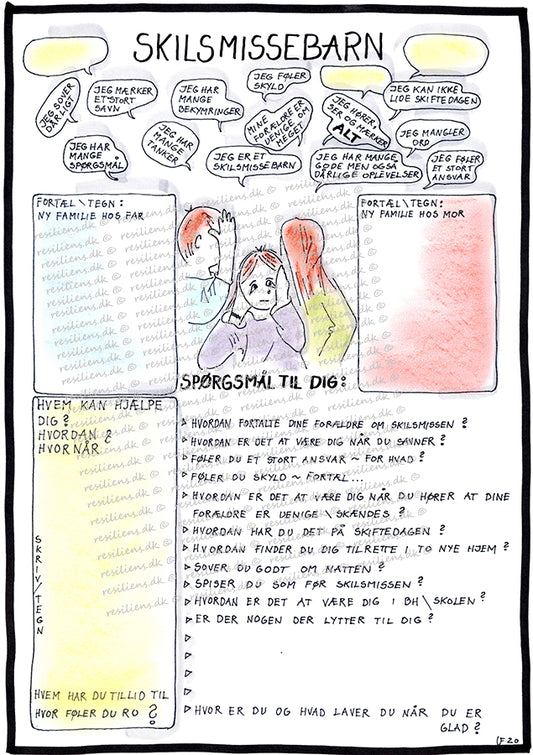 SKILSMISSEBARN
JEG SOVER
DÅRLIGT
JEG MÆRKER
ET STORT
SAVN
JEG HAR
MANGE
BEKYMRINGER
JEG FØLER
SKYLD
JEG KAN IKKE
LIDE SKIFTEDAGEN
JEG HAR
MANGE
SPØRGSMÅL
JEG HAR
MANGE
TANKER
MINE
FORÆLDRE ER
UENIGE OM
MEGET
JEG HØRER
SER OG MÆRKER
ALT
JEG MANGLER
ORD
JEG ER ET
SKILSMISSEBARN
JEG HAR MANGE
GODE MEN OGSÅ
DÅRLIGE OPLEVELSER
JEG FØLER
ET STORT
ANSVAR
FORTÆL \ TEGN:
NY FAMILIE HOS FAR
FORTÆL \ TEGN:
NY FAMILIE HOS MOR
resiliens.dk ©
SPØRGSMÅL TIL DIG:
HVEM KAN HJÆLPE
DIG?
HVORDAN?
HVORNÅR
SKRIV/TEGN
HVEM HAR DU TILLID TIL
HVOR FØLER DU RO?
▷ HVORDAN FORTALTE DINE FORÆLDRE OM SKILSMISSEN?
▷ HVORDAN ER DET AT VÆRE DIG NÅR DU SAVNER?
▷ FØLER DU ET STORT ANSVAR ~ FOR HVAD?
▷ FØLER DU SKYLD ~ FORTÆL...
▷ HVORDAN ER DET AT VÆRE DIG NÅR DU HØRER AT DINE
FORÆLDRE ER UENIGE \ SKÆNDES?
▷ HVORDAN HAR DU DET PÅ SKIFTEDAGEN?
▷ HVORDAN FINDER DU DIG TILRETTE I TO NYE HJEM?
▷ SOVER DU GODT OM NATTEN?
▷ SPISER DU SOM FØR SKILSMISSEN?
▷ HVORDAN ER DET AT VÆRE DIG I BH \ SKOLEN?
▷ ER DER NOGEN DER LYTTER TIL DIG?
▷
▷
▷
▷
▷ HVOR ER DU OG HVAD LAVER DU NÅR DU ER
GLAD?